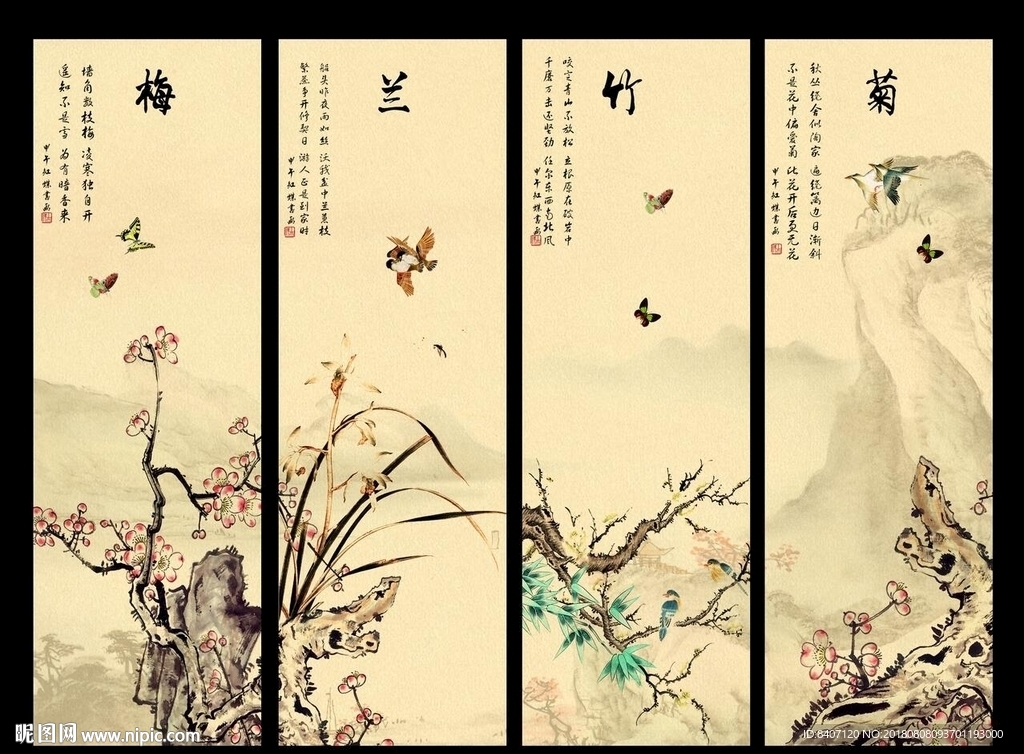 梅
墙角数枝梅 凌寒独自开
遥知不是雪 为有暗香来
甲午红蝶書画
兰
船头昨夜雨如丝 沃我盆中兰蕙枝
繁蕊争开修契日 游人正是到家时
甲午红蝶書画
竹
咬定青山不放松 立根原在破岩中
千磨万击还坚劲 任尔东西南北风
甲午红蝶書画
菊
秋丛绕舍似陶家 遍绕篱边日渐斜
不是花中偏爱菊 此花开后更无花
甲午红蝶書画
昵图网 www.nipic.com
ID:8407120 NO:20180808093701193000